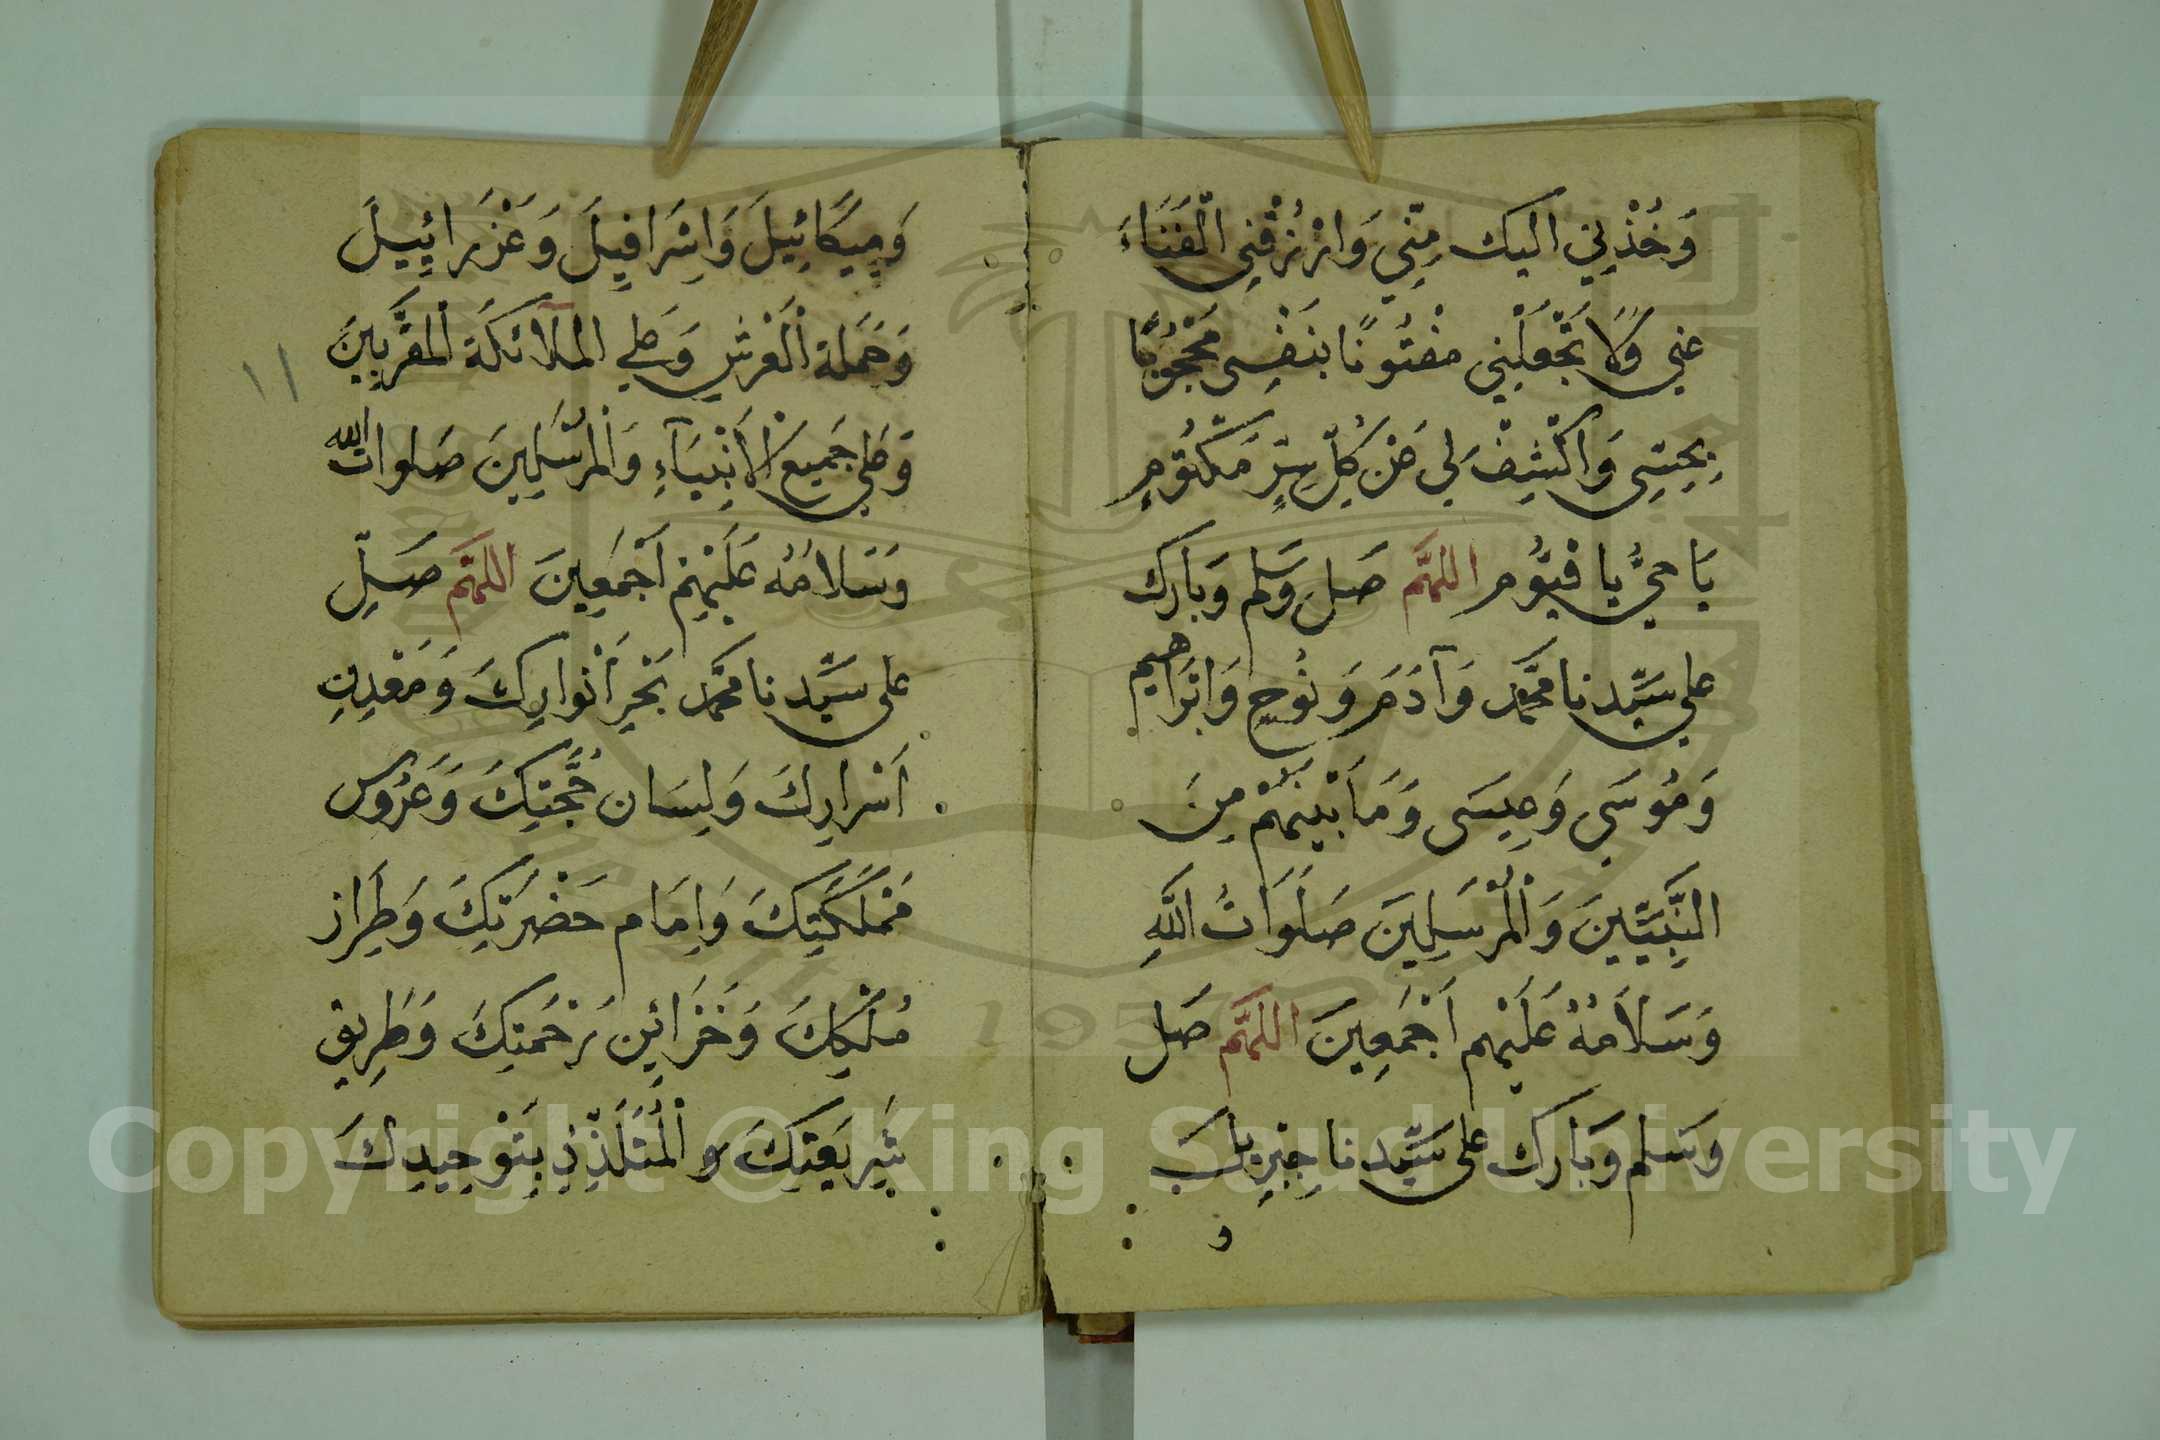 وَخُذْنِي اليك مِنّي وَارْزُقْنِي الْفَنَاءَ
عني وَلَا تَجْعَلْنِي مفْتُونًا بنَفْسِى مَحْجُوبًا
بِحِسِّى وَاكْشِفْ لِي عَنْ كُلِّ سِرٍّ مَكْتُومٍ
يَا حَيُّ يا قيُّوم اللهمَّ صَلِ وَسَلم وَبارك
على سَيِّدنا محَمَّد وَآدَمَ وَنُوحٍ وَابْرَاهيم
وَمُوسَي وَعِيسَى وَمَا بَيْنَهُمْ مِنَ
النَّبِيِّينَ وَالْمُرْسَلِينَ صَلَوَاتُ اللَّهِ
وَسَلَامُهُ عَلَيْهم اَجْمَعِينَ اللهمَّ صَل
وَسَلم وَبَارك على سَيِّدنا جِبْرِيلَ
و
وَمِيكَائِيلَ وَاِسْرَافِيلَ وَعَزْرَائِيلَ
وَحَمَلة الْعَرْشِ وَعَلي الملآئكَة الْمقَرَّبِينَ
وَعَلي جَمِيع الْأَنْبِيَآءِ وَالْمُرْسَلِينَ صَلوات الله
وَسَلامُهُ عَلَيْهِمْ اَجْمَعِينَ اللهمَّ صَلِّ
على سَيِّدنا محَمَّد بَحْرِ اَنْوارِكَ وَمَعْدِنِ
اَسْرارِكَ وَلِسَان حُجَّتِكَ وَعَرُوس
مَمْلَكَتِكَ وَاِمَام حَضْرَتِكَ وَطِرَاز
مُلْكِكَ وَخَزَائِن رَحْمَتِكَ وَطَرِيق
شَرِيعَتِكَ والْمُتَلَذِّذِ بِتَوْحِيدِكَ
١١
Copyright © King Saud University
1957